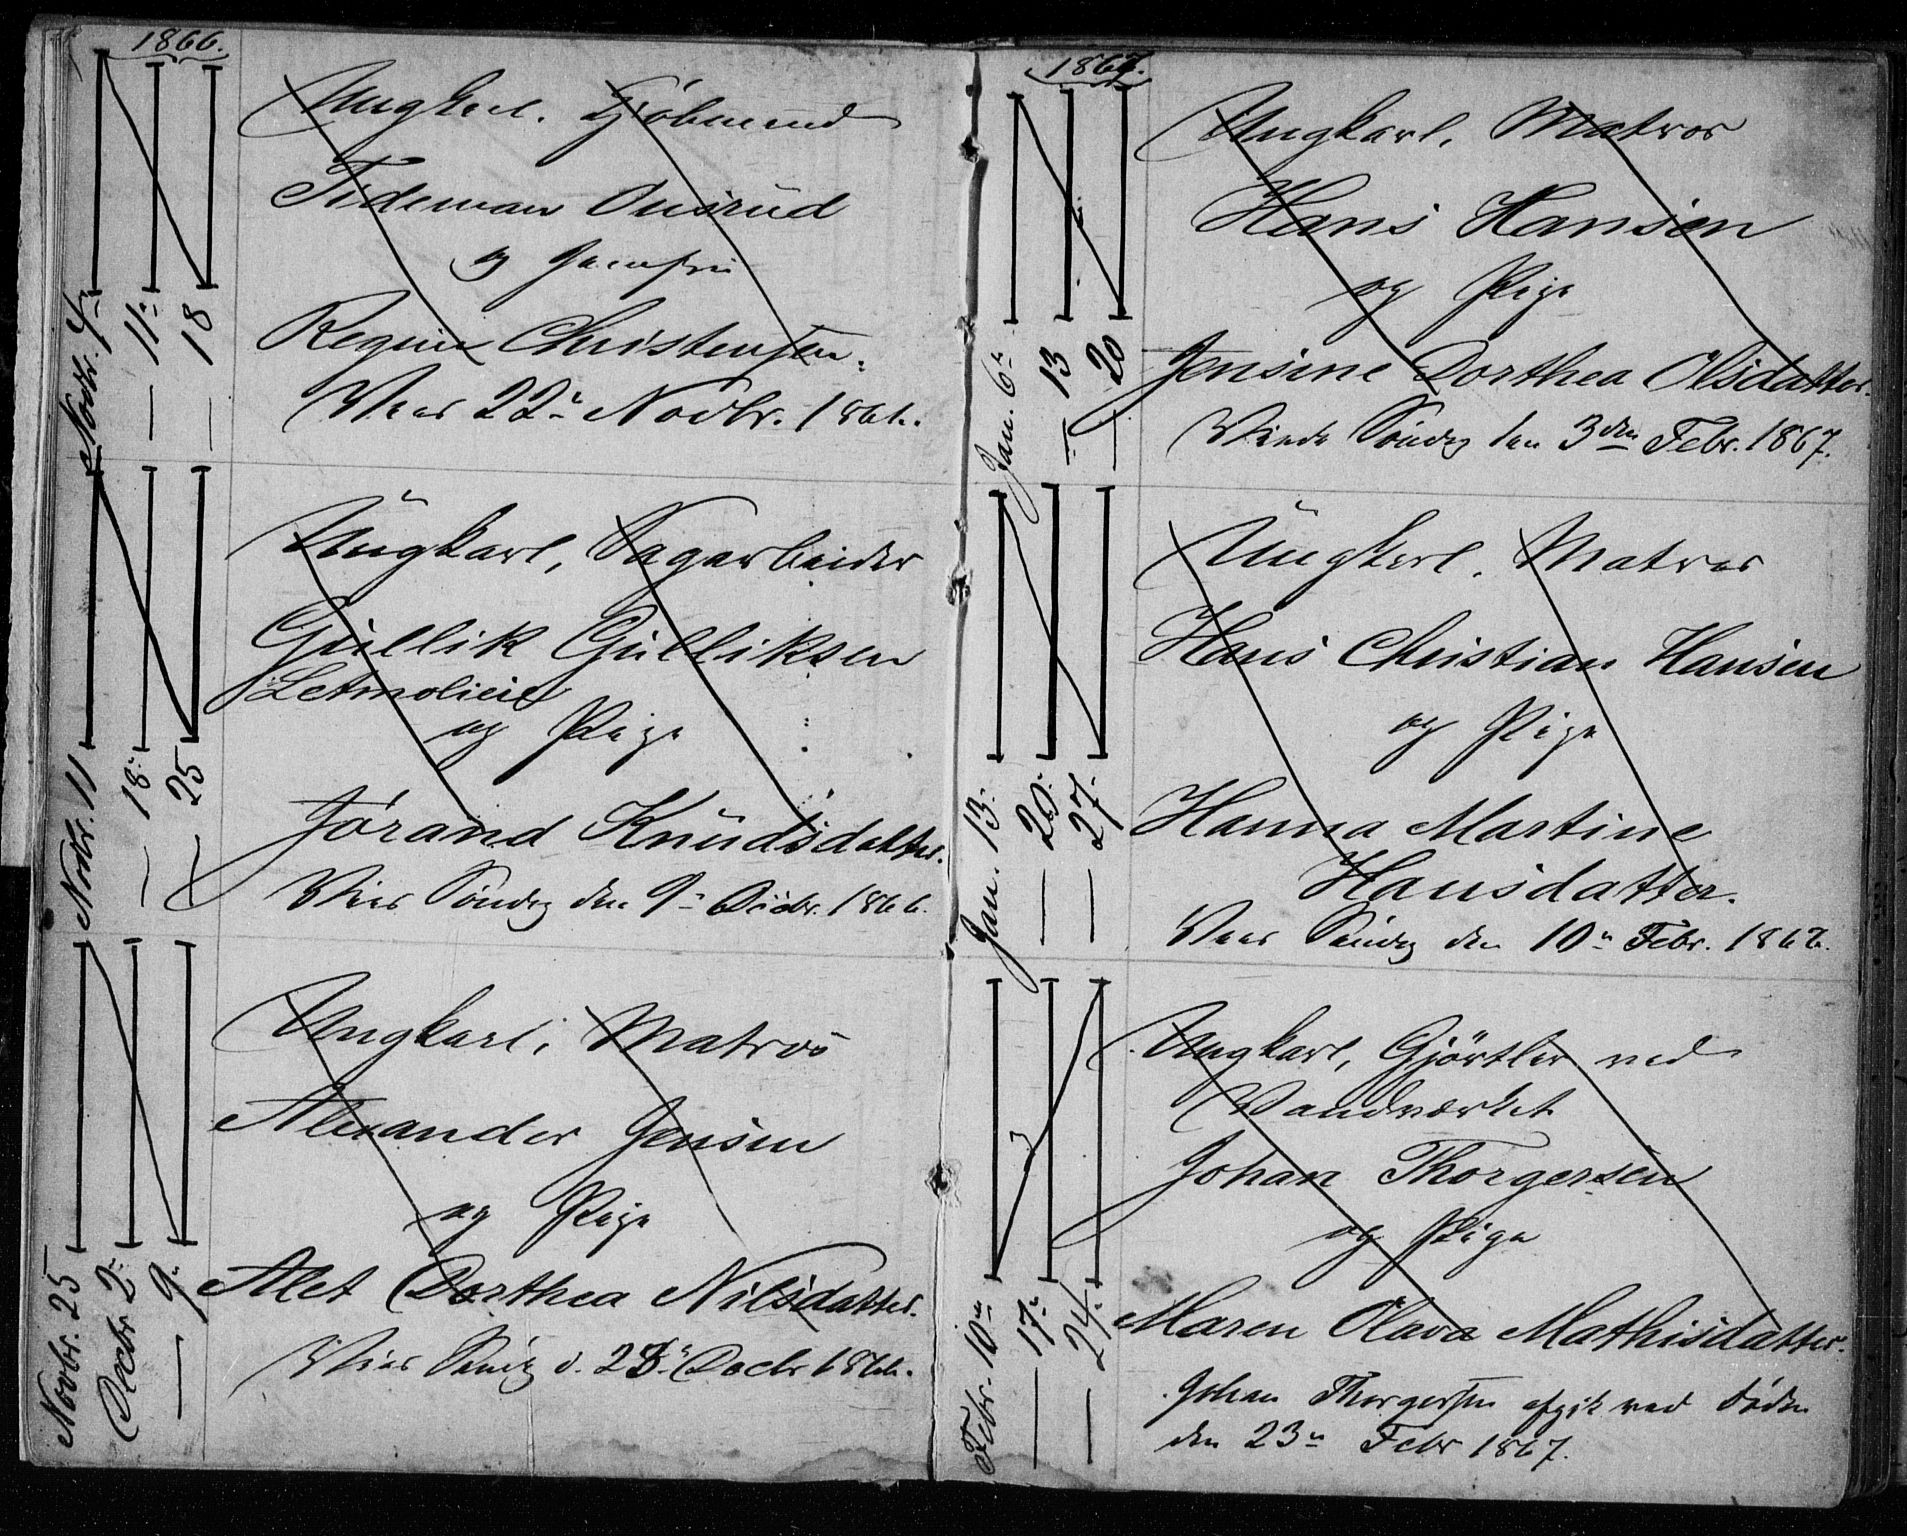 1866.
Novbr. 4
— 11
— 18
Ungkarl. Kjöbmand
Tideman Onsrud
og Jomfru
Regine Christensen.
Viet 22 Novbr. 1866.
Novbr. 11
— 18
— 25
Ungkarl, Sagarbeider
Gullik Gulliksen
og Pige
Jórand Knudsdatter.
Viet Söndag den 9 Decbr. 1866.
Novbr. 25
Decbr 2
— 9
Ungkarl, Matros
Alexander Jensen
og Pige
Alet Dorthea Nilsdatter.
Viet d. Decbr 1866.
1867.
Jan. 6
— 13
— 20
Ungkarl, Matros
Hans Hansen
og Pige
Jensine Dorthea Olsdatter.
Viede Söndag den 3den Febr. 1867.
Jan. 13
— 20
— 27
Ungkarl. Matros
Hans Christian Hansen
og Pige
Hanna Martine
Hansdatter.
Viet Söndag den 10 Febr. 1867.
Febr. 10
— 17
— 24
Ungkarl, Gjörtler ved
Vandværket
Johan Thorgersen
og Pige
Maren Olava Mathisdatter.
Johan Thorgersen afgik ved Döden
den 23 Febr 1867.